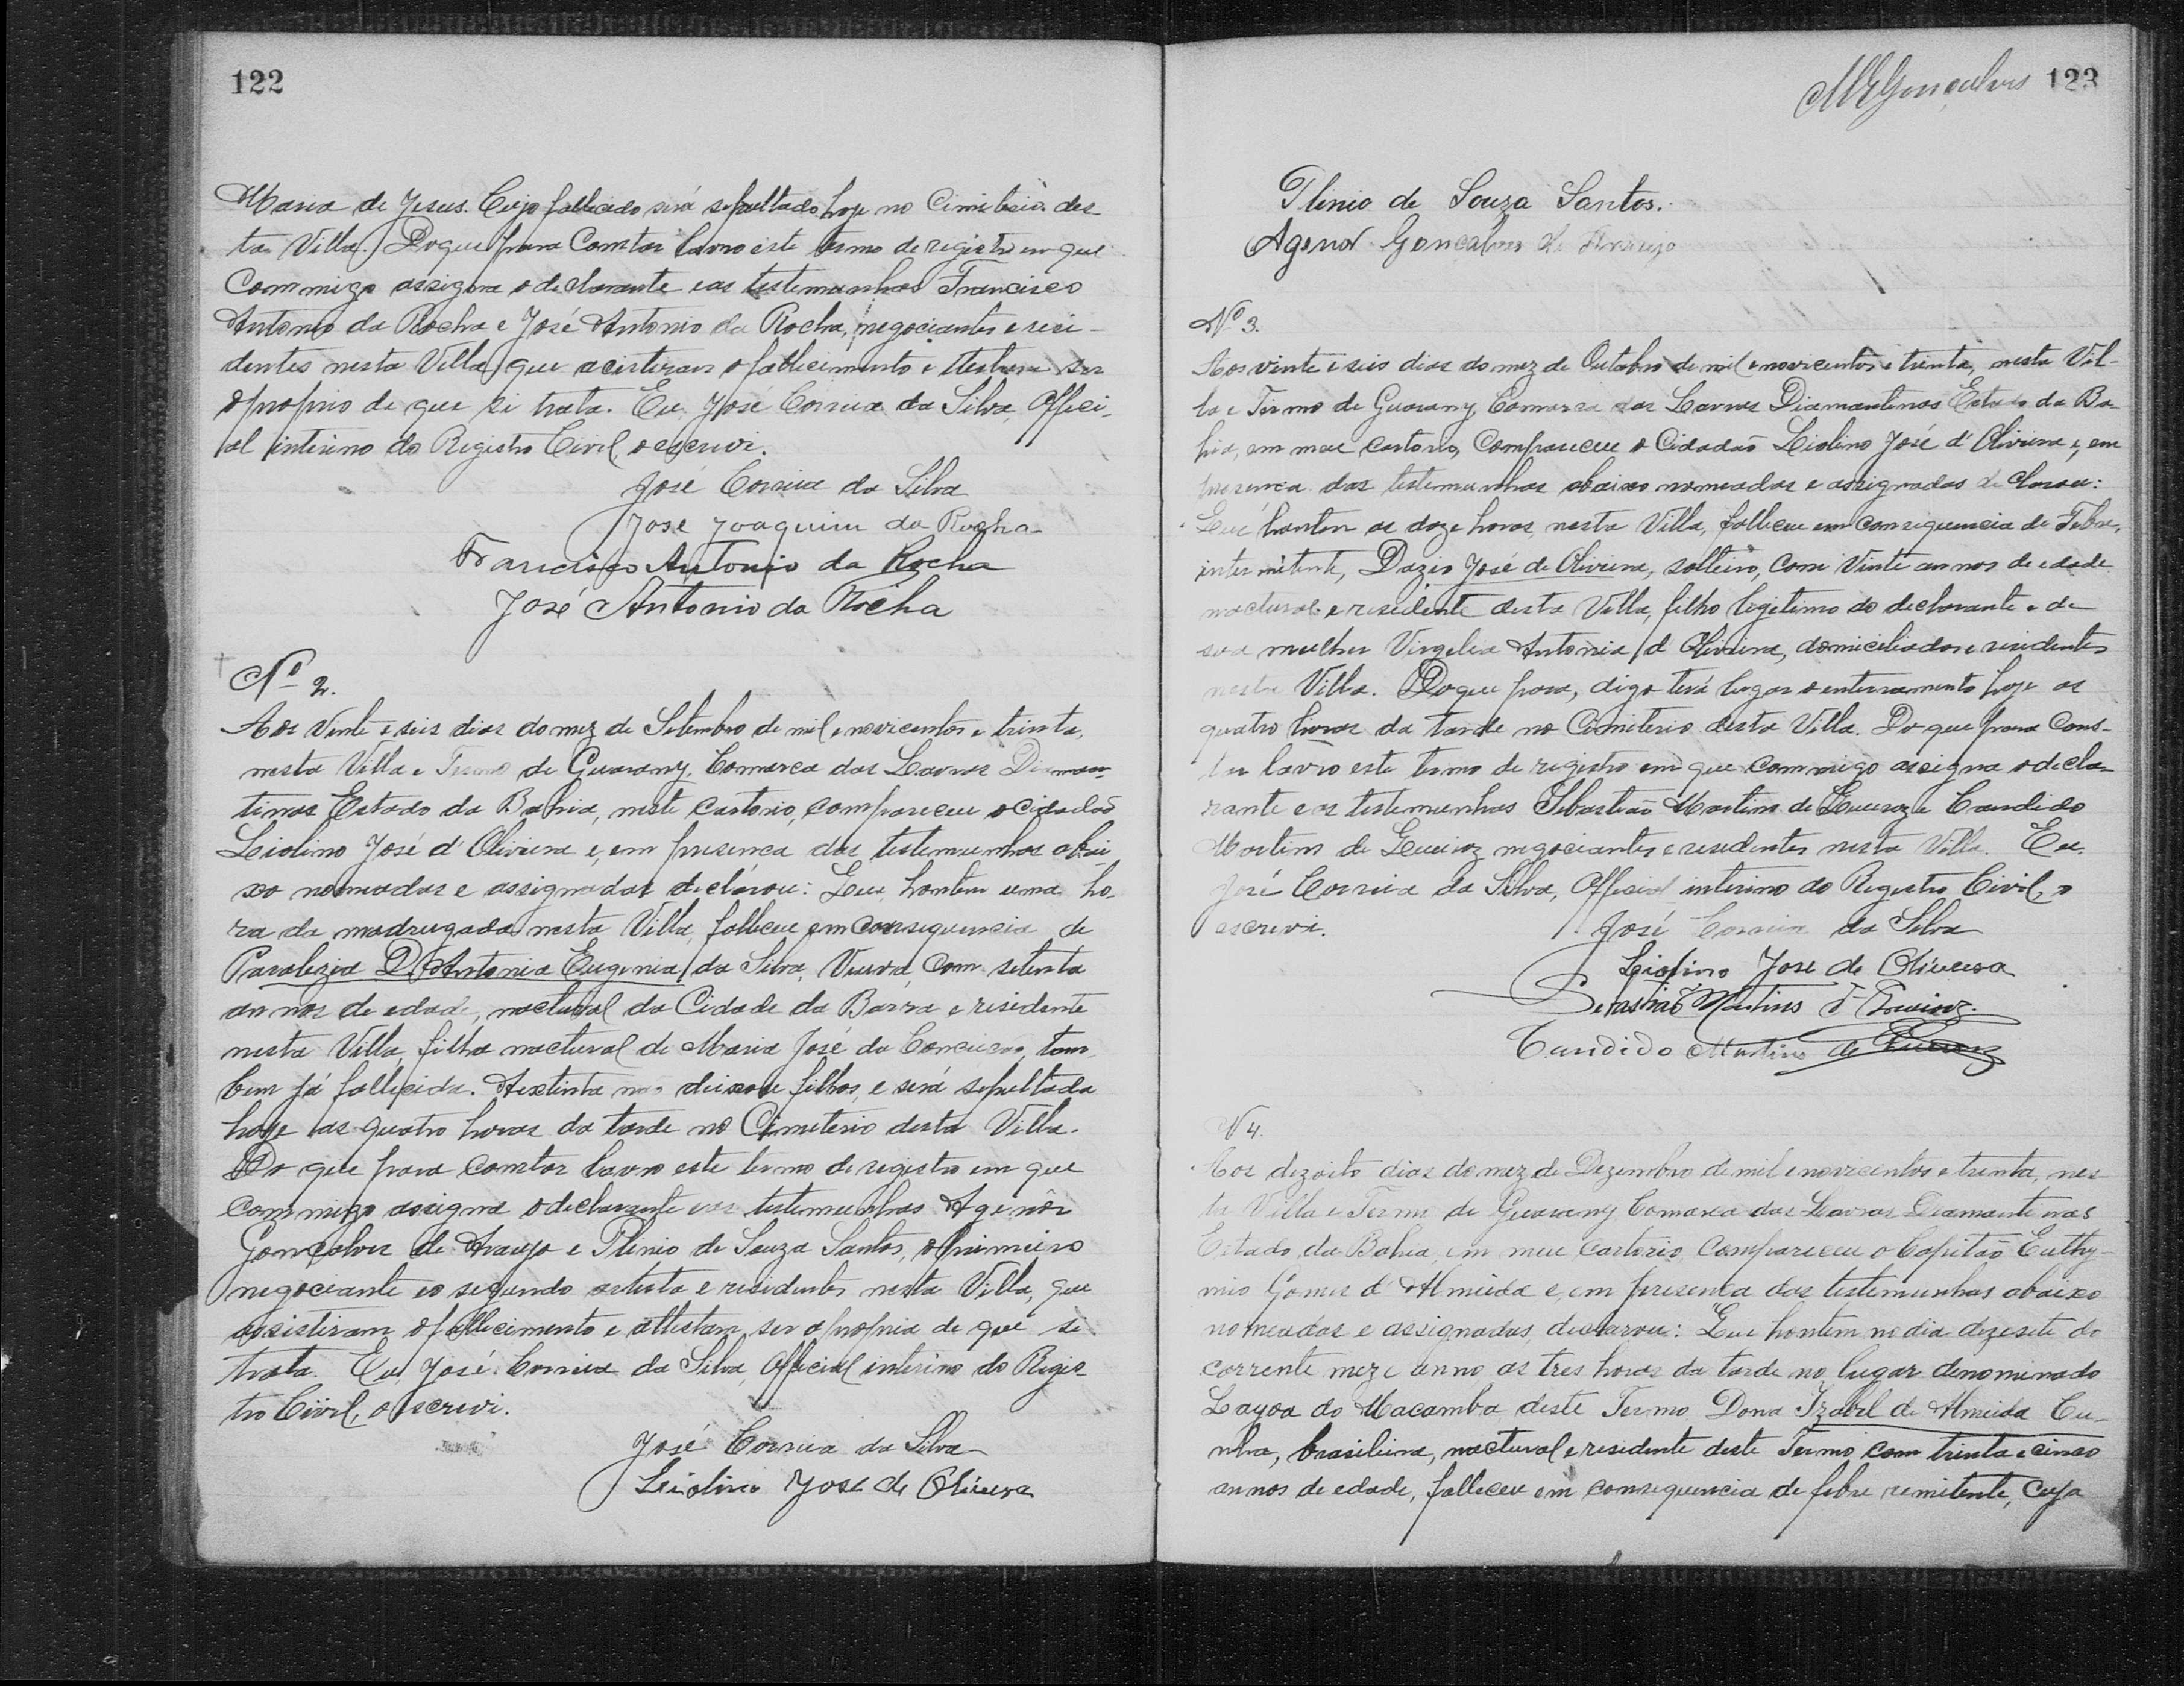 122
Maria de Jesus. Cujo fallecido será sepultado hoje no Cimiterio des
ta Villa. Do que para Constar lavro este termo de registro em que
Commigo assigna o declarante e as testemunhas Francisco
Antonio da Rocha e José Antonio da Rocha, negociantes e resi-
dentes nesta Villa, que acisteram o fallecimento e attestam ser
o proprio de que si trata. Eu José Correia da Silva, Offici-
al interino do Registro Civil, o escrevi.
José Correia da Silva
José Joaquim da Rocha
Francisco Antonio da Rocha
José Antonio da Rocha
Nº 2.
Aos Vinte e seis dias do mez de Setembro de mil e novecentos e trinta,
nesta Villa e Termo de Guarany, Comarca das Lavras Diaman-
tinas Estado da Bahia, neste cartorio, compareceu o cidadaõ
Liolino José d'Oliveira e, em presença das testemunhas abai-
xo nomeadas e assignadas declarou: Que, hontem uma ho-
ra da madrugada nesta Villa, falleceu em consequencia de
Paralezia D. Antonia Eugenia da Silva, Viuva, com setenta
annos de edade, nactural da Cidade da Barra e residente
nesta Villa, filha nactural de Maria José da Conceição, tam
bem já fallecida. A extinta não deixou filhos, e será sepultada
hoje as quatro horas da tarde no Cimeterio desta Villa.
Do que para constar lavro este termo de registro em que
commigo assigna o declarante e as testemunhas Agenôr
Gonçalves de Araujo e Plinio de Souza Santos, o primeiro
negociante e o segundo artista e residentes nesta Villa, que
assistiram o fallecimento e attestam ser a propria de que si
trata. Eu, José Correia da Silva, Official interino do Regis-
tro Civil, o escrevi.
José Correia da Silva
Liolino José de Oliveira
MEGonçalves 123
Plinio de Souza Santos.
Agenor Goncalves de Araujo
Nº 3.
Aos vinte e seis dias do mez de Outubro de mil e novecentos e trinta, nesta Vil-
la e Termo de Guarany, Comarca das Lavras Diamantinas Estado da Ba-
hia, em meu cartorio, Compareceu o Cidadaõ Liolino José d'Oliveira e, em
presença das testemunhas abaixo nomeadas e assignadas declarou:
Que hontem as doze horas, nesta Villa, falleceu em consequencia de Febre,
intermitente, Dazio José de Oliveira, solteiro, com Vinte annos de edade
nactural e residente desta Villa, filho legitimo do declarante e de
sua mulher Virgelia Antonia d'Oliveira, domiciliados e residentes
nesta Villa. Do que para, digo terá lugar o enterramento hoje as
quatro horas da tarde no Cimiterio desta Villa. Do que para Cons-
tar lavro este termo de registro em que commigo assigna o decla-
rante e as testemunhas Sebastiaõ Martins de Queiroz e Candido
Martins de Queiroz negociantes e residentes nesta Villa. Eu.
José Correia da Silva, Official interino do Registro Civil, o
escrevi.
José Correia da Silva
Liolino José de Oliveira
Sebastião Martins d' Queiroz
Candido Martins de Queiroz
N 4.
Aos dezoito dias do mez de Dezembro de mil e novecentos e trinta, nes
ta Villa e Termo de Guarany Comarca das Lavras Diamantinas
Estado da Bahia, em meu cartorio, Compareceu o Capitaõ Euthy-
mio Gomes d'Almeida e, em presença das testemunhas abaixo
nomeadas e assignadas, declarou: Que hontem no dia dezesete do
corrente mez e anno as tres horas da tarde no lugar denominado
Lagoa do Macambo deste Termo Dona Izabel de Almeida Cu-
nha, brasileira, nactural e residente deste Termo, com trinta e cinco
annos de edade, falleceu em consequencia de febre remitente, Cuja